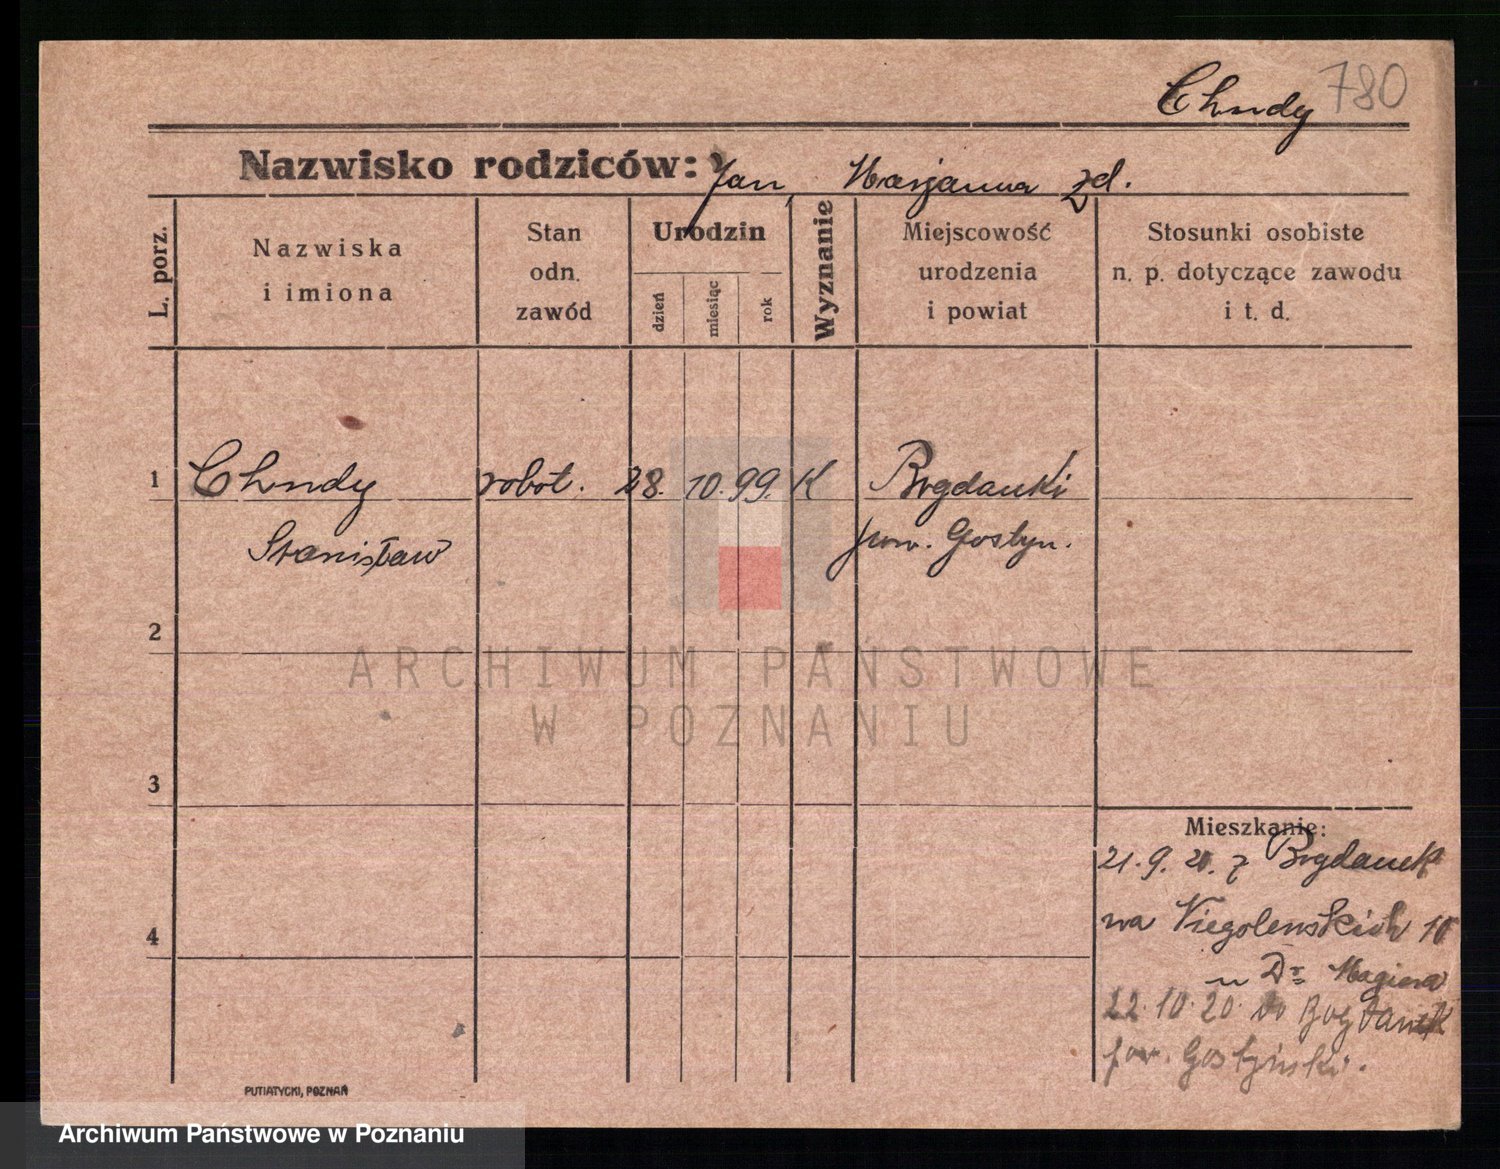 Chudy 780
Nazwisko rodziców: Jan, Marjanna zd.
L. porz.
Nazwiska
i imiona
Stan
odn.
zawód
Urodzin
dzień
miesiąc
rok
Wyznanie
Miejscowość
urodzenia
i powiat
Stosunki osobiste
n. p. dotyczące zawodu
i t. d.
1 Chudy robot. 28. 10. 99. K Bogdanki
Stanisław pow. Gostyn.
2
ARCHIWUM PAŃSTWOWE
W POZNANIU
3
Mieszkanie:
21. 9. 20. z Bogdanek
4
na 10
u Dr Magiera
22. 10. 20. do Bogdanek
pow. Gostyński.
PUTIATYCKI, POZNAŃ
Archiwum Państwowe w Poznaniu